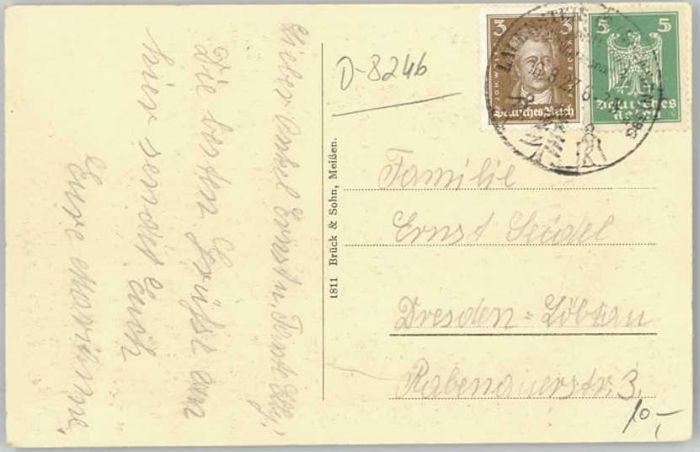 Lieber Onkel Ernst u. Tante Elly,
Die besten Grüße von
hier sendet Euch
Eure Marianne.
1811 Brück & Sohn, Meißen.
D-8246
3 3
Deutsches Reich
5 5
Deutsches
Reich
Familie
Ernst Seidel
Dresden-Löbtau
Rabenauerstr. 3.
10,-